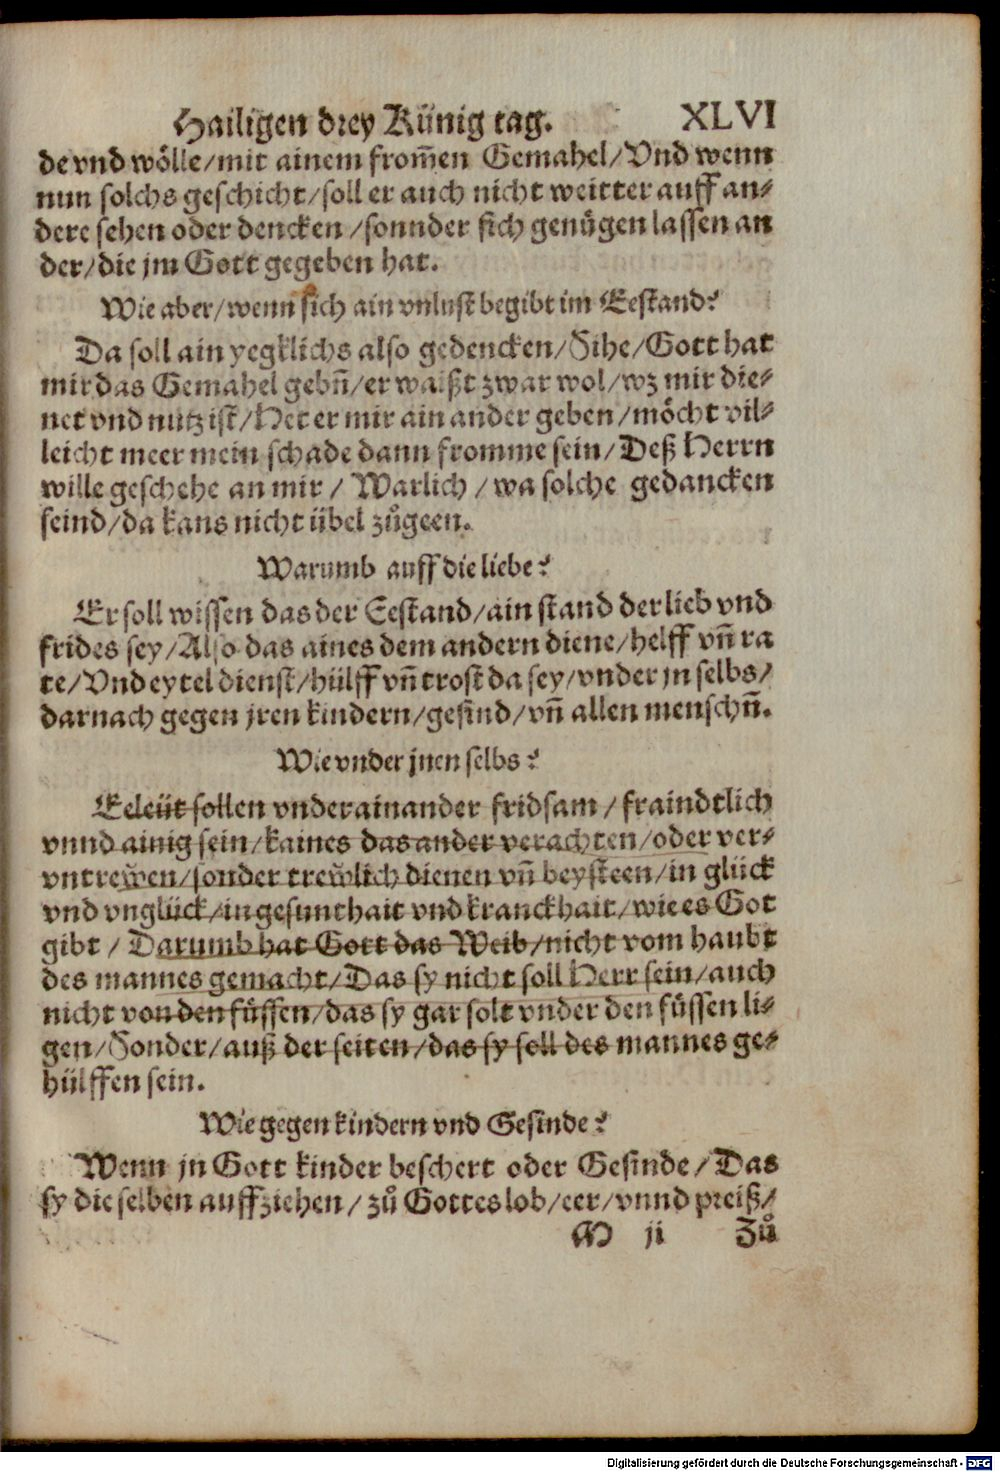 Hailigen drey Künig tag. XLVI
de vnd wölle/mit ainem from̃en Gemahel/Vnd wenn
nun solchs geschicht/soll er auch nicht weitter auff an-
dere sehen oder dencken/sonnder sich genůgen lassen an
der/die jm Gott gegeben hat.
Wie aber/wenn sich ain vnlust begibt im Eestand?
Da soll ain yegklichs also gedencken/Sihe/Gott hat
mir das Gemahel gebñ/er waißt zwar wol/wz mir die-
net vnd nutz ist/Het er mir ain ander geben/möcht vil-
leicht meer mein schade dann fromme sein/Deß Herrn
wille geschehe an mir/Warlich/wa solche gedancken
seind/da kans nicht übel zůgeen.
Warumb auff die liebe?
Er soll wissen das der Eestand/ain stand der lieb vnd
frides sey/Also das aines dem andern diene/helff vñ ra
te/Vnd eytel dienst/hülff vñ trost da sey/vnder jn selbs/
darnach gegen jren kindern/gesind/vñ allen menschñ.
Wie vnder jnen selbs?
Eeleüt sollen vnderainander fridsam/fraindtlich
vnnd ainig sein/kaines das ander verachten/oder ver-
vntrewen/sonder trewlich dienen vñ beysteen/in glück
vnd vnglück/in gesunthait vnd kranckhait/wie es Got
gibt/Darumb hat Gott das Weib/nicht vom haubt
des mannes gemacht/Das sy nicht soll Herr sein/auch
nicht von den füssen/das sy gar solt vnder den füssen li-
gen/Sonder/auß der seiten/das sy soll des mannes ge-
hülffen sein.
Wie gegen kindern vnd Gesinde?
Wenn jn Gott kinder beschert oder Gesinde/Das
sy die selben auffziehen/zů Gottes lob/eer/vnnd preiß/
M ij Zů
Digitalisierung gefördert durch die Deutsche Forschungsgemeinschaft - DFG